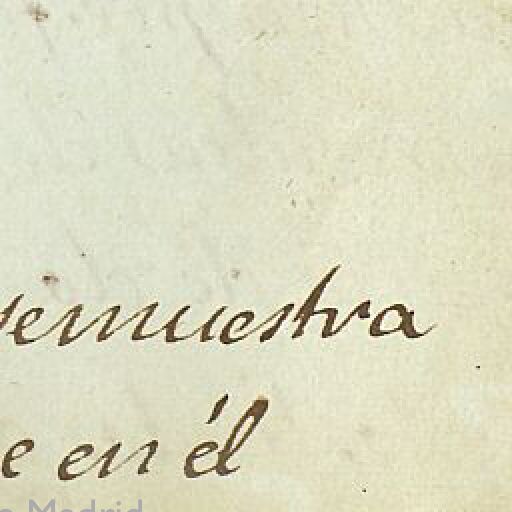 demuestra
e en él
Madrid